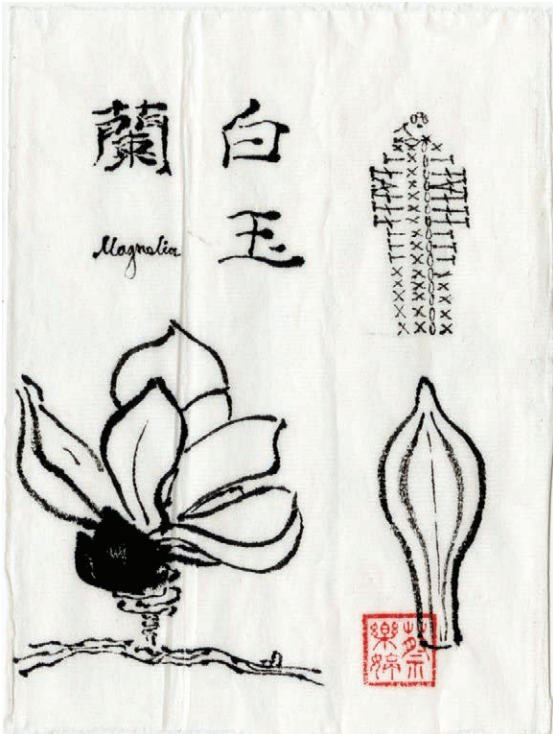 白玉
蘭
Magnolia
蔡
樂